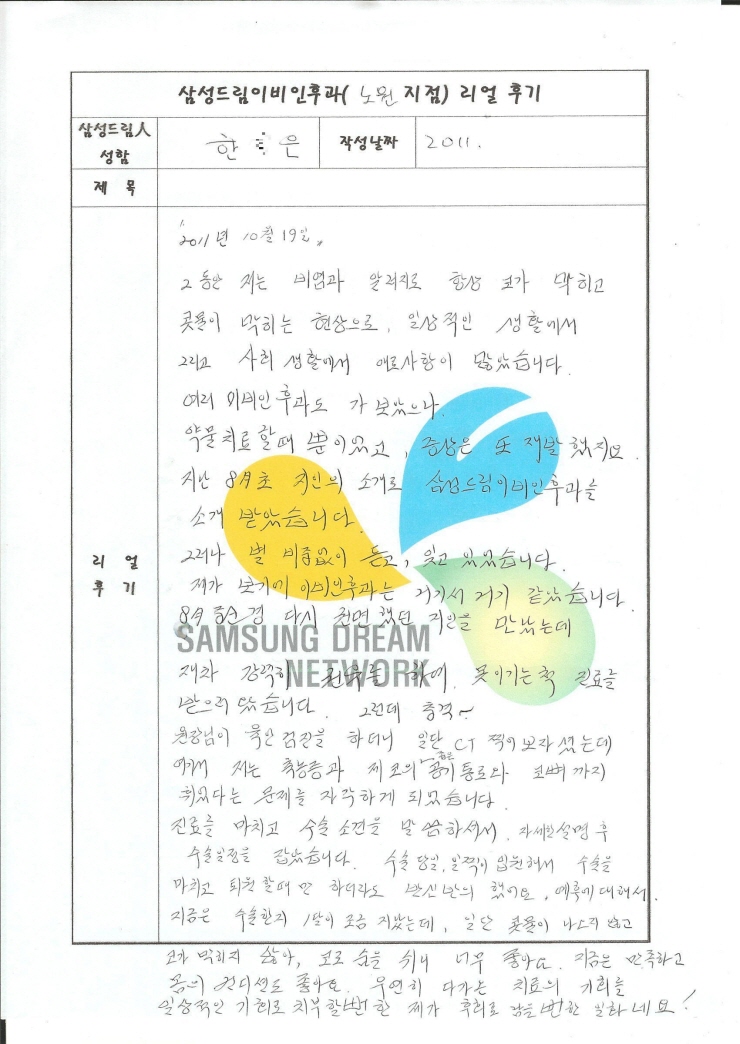 삼성드림이비인후과( 노원 지점) 리얼 후기
삼성드림人 성함
한 은
작성날짜
2011.
제 목
리 얼 후 기
2011년 10월 19일.
그 동안 저는 비염과 알러지로 항상 코가 막히고
콧물이 막히는 현상으로, 일상적인 생활에서
그리고 사회 생활에서 애로사항이 많았습니다.
여러 이비인후과도 가 보았으나.
약물치료 할때 뿐이었고, 증상은 또 재발 했지요.
지난 8月초 지인의 소개로 삼성드림이비인후과를
소개 받았습니다.
그러나 별 비중없이 듣고, 잊고 있었습니다.
제가 보기에 이비인후과는 거기서 거기 같았습니다.
8月 중순경 다시 전면했던 지인을 만났는데
SAMSUNG DREAM
NETWORK
재차 강력히 권유를 하여. 못이기는척 진료를
받으러 갔습니다. 그런데 충격~
원장님이 육안검진을 하더니 일단 CT 찍어보자 셨는데
여기서 저는 축농증과 제 코의 공기통로와 코뼈까지
휘었다는 문제를 자각하게 되었습니다.
진료를 마치고 수술 소견을 말씀하셔서. 자세한 설명 후
수술일정을 잡았습니다. 수술 당일, 일찍이 입원해서 수술을
마치고 퇴원 할때 만 하더라도 반신반의 했어요. 예후에 대해서.
지금은 수술한지 1달이 조금 지났는데, 일단 콧물이 나오지 않고
코가 막히지 않아, 코로 숨을 쉬니 너무 좋아요. 지금은 만족하고
몸의 컨디션도 좋아요. 우연히 다가온 치료의 기회를
일상적인 기회로 치부할뻔 한 제가 후회로 남을뻔한 일화네요!